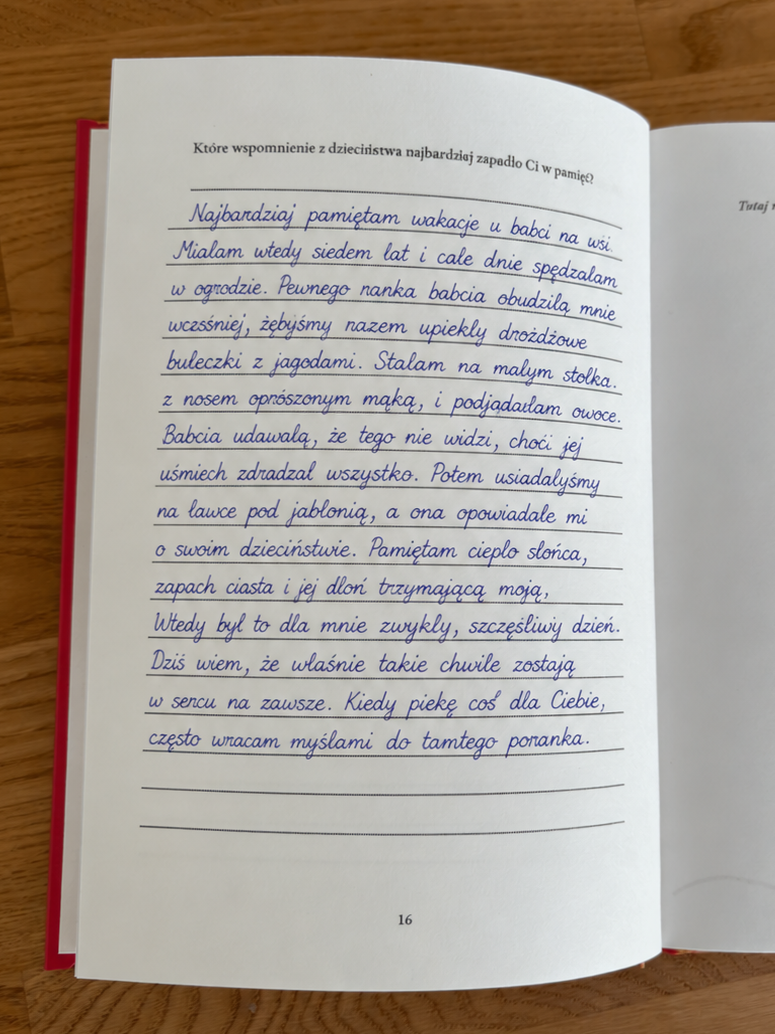 Które wspomnienie z dzieciństwa najbardziej zapadło Ci w pamięć?
Tutaj
Najbardziaj pamiętam wakacje u babci na wsi.
Miałam wtedy siedem lat i cale dnie spędzałam
w ogrodzie. Pewnego ranka babcia obudziłą mnie
wczsśniej, żębyśmy razem upiekły drożdżowe
bułeczki z jagodami. Stałam na małym stołka.
z nosem oprószonym mąką, i podjądałam owoce.
Babcia udawałą, że tego nie widzi, choći jej
uśmiech zdradzał wszystko. Potem usiadałyśmy
na ławce pod jabłonią, a ona opowiadałe mi
o swoim dzieciństwie. Pamiętam ciepło słońca,
zapach ciasta i jej dłoń trzymającą moją,
Wtedy był to dla mnie zwykły, szczęśliwy dzień.
Dziś wiem, że właśnie takie chwile zostają
w sercu na zawsze. Kiedy piekę coś dla Ciebie,
często wracam myślami do tamtego poranka.
16